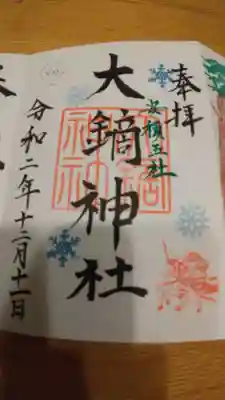 奉拝
安積三社
大鏑神社
令和二年十二月十一日